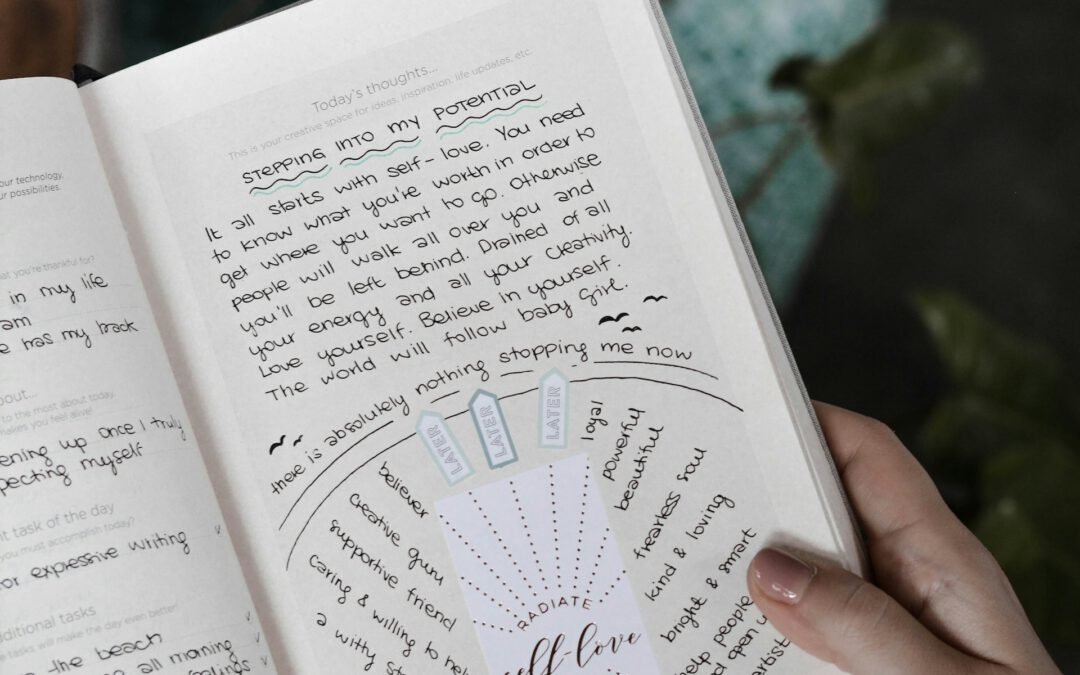 our technology,
ur possibilities.
at you're thankful for?
in my life
am
e has my back
bout...
to the most about today.
makes you feel alive!
ening up once I truly
pecting myself
nt task of the day
you must accomplish today?
or expressive writing
dditional tasks
e tasks will make the day even better!
the beach
all morning
eelings
Today's thoughts...
This is your creative space for ideas, inspiration, life updates, etc.
STEPPING INTO MY POTENTIAL
It all starts with self-love. You need
to know what you're worth in order to
get where you want to go. Otherwise
people will walk all over you and
you'll be left behind. Drained of all
your energy and all your creativity.
Love yourself. Believe in yourself.
The world will follow baby girl.
there is absolutely nothing stopping me now
LATER
LATER
LATER
believer
creative guru
supportive friend
caring & willing to hel
a witty st
loyal
powerful
beautiful
fearless soul
kind & loving
bright & smart
help people
d open
artist
RADIATE
self-love